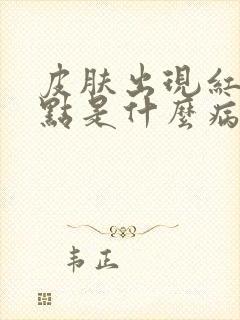 皮肤出現紅
點是什麼病
韦正